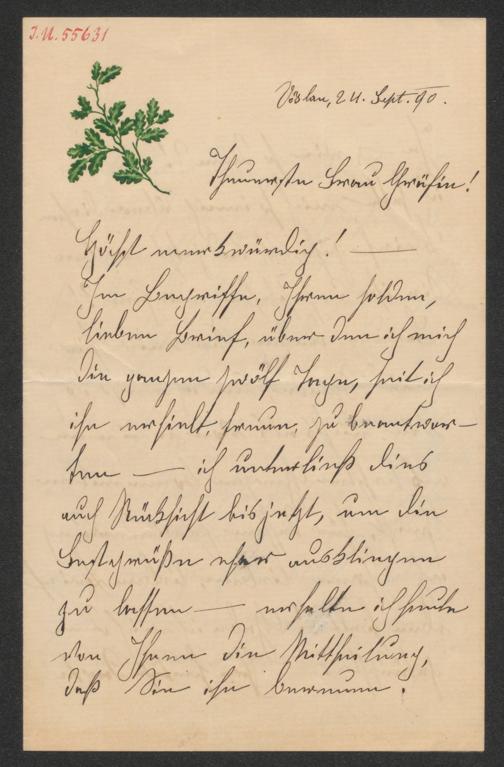 J.N. 55631
Vöslau, 24. Sept. 90.
Theuerste Frau Gräfin!
Höchst merkwürdig! —
Im Begriffe, Ihren holden,
lieben Brief, über den ich mich
die ganzen zwölf Tage, seit ich
ihn erhielt, freue, zu beantwor-
ten — ich unterließ dies
aus Rücksicht bis jetzt, um die
Festgrüße eher ausklingen
zu lassen — erhalte ich heute
von Ihnen die Mittheilung,
daß Sie ihn bereuen.